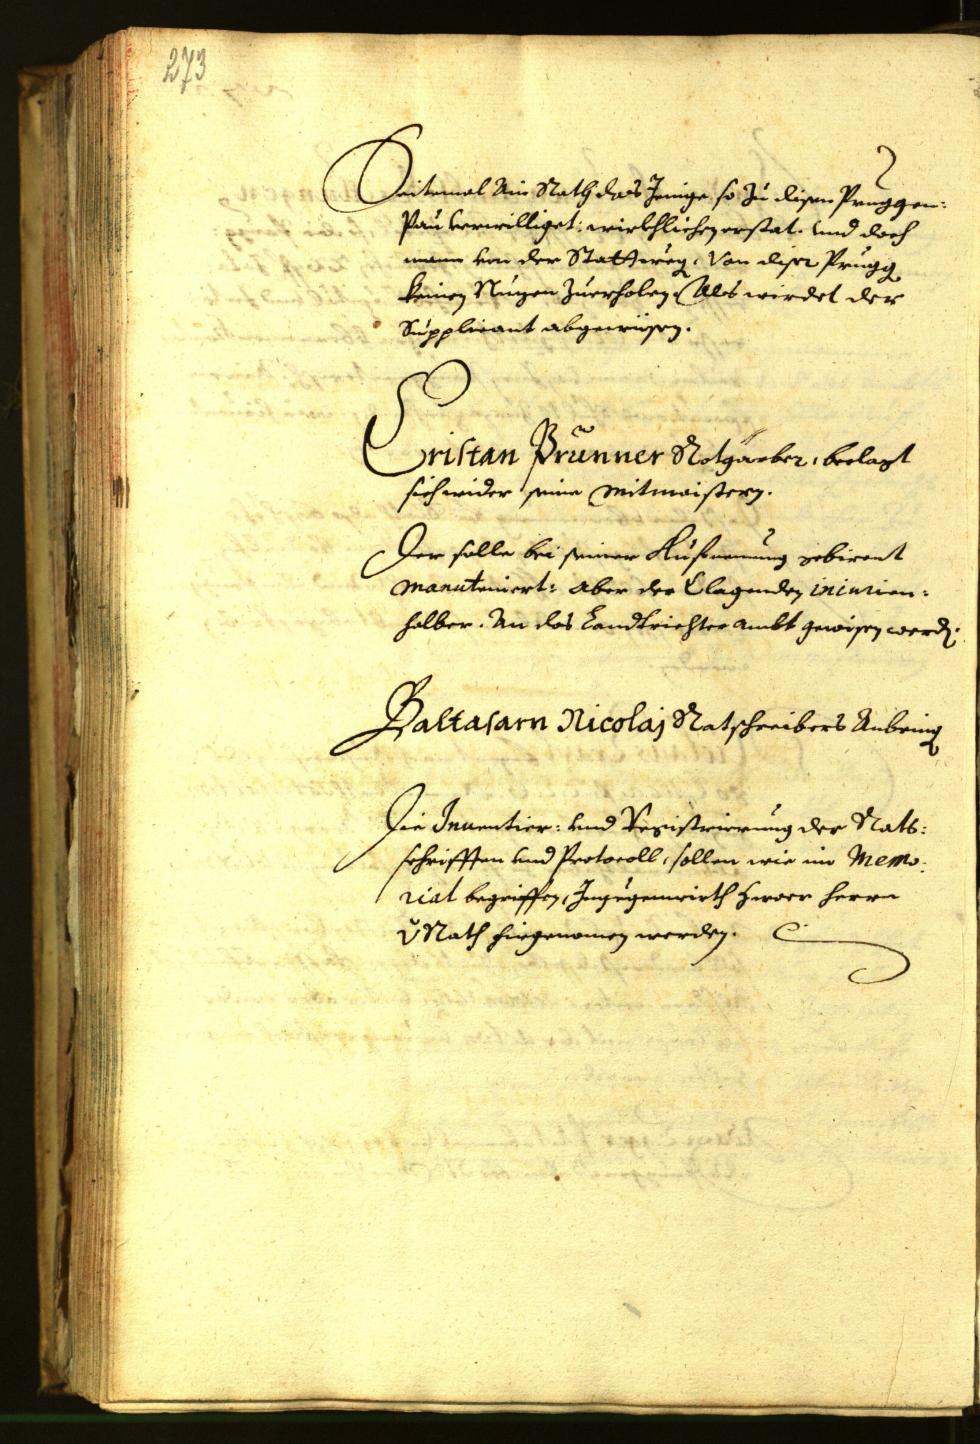 273
Seitemal Ain Rath das Jenige so zu disen Pruggen:
Pau verwilliget: würkhlichen erstat. und doch
mann von der Statt weg, Von diser Prugg
keinen Nuzen zuerholen. Als wirdet der
Supplicant abgewisen.
Cristan Prunner Rotgärber, beclagt
sich wider seine Mitmaistern.
Der solle bei seiner Außnemung gebirent
manuteniert: Aber der Clagenden iniurien:
halber. An das Landtrichter Ambt gewisen werdn.
Baltasarn Nicolaj Ratschreibers Anbring
Die Inuentier: und Registrierung der Rats:
schrifften und Protocoll, sollen wie im Memo:
rial begriffen, Ingegenwirth zwoer herrn
Rath firgenomen werden.